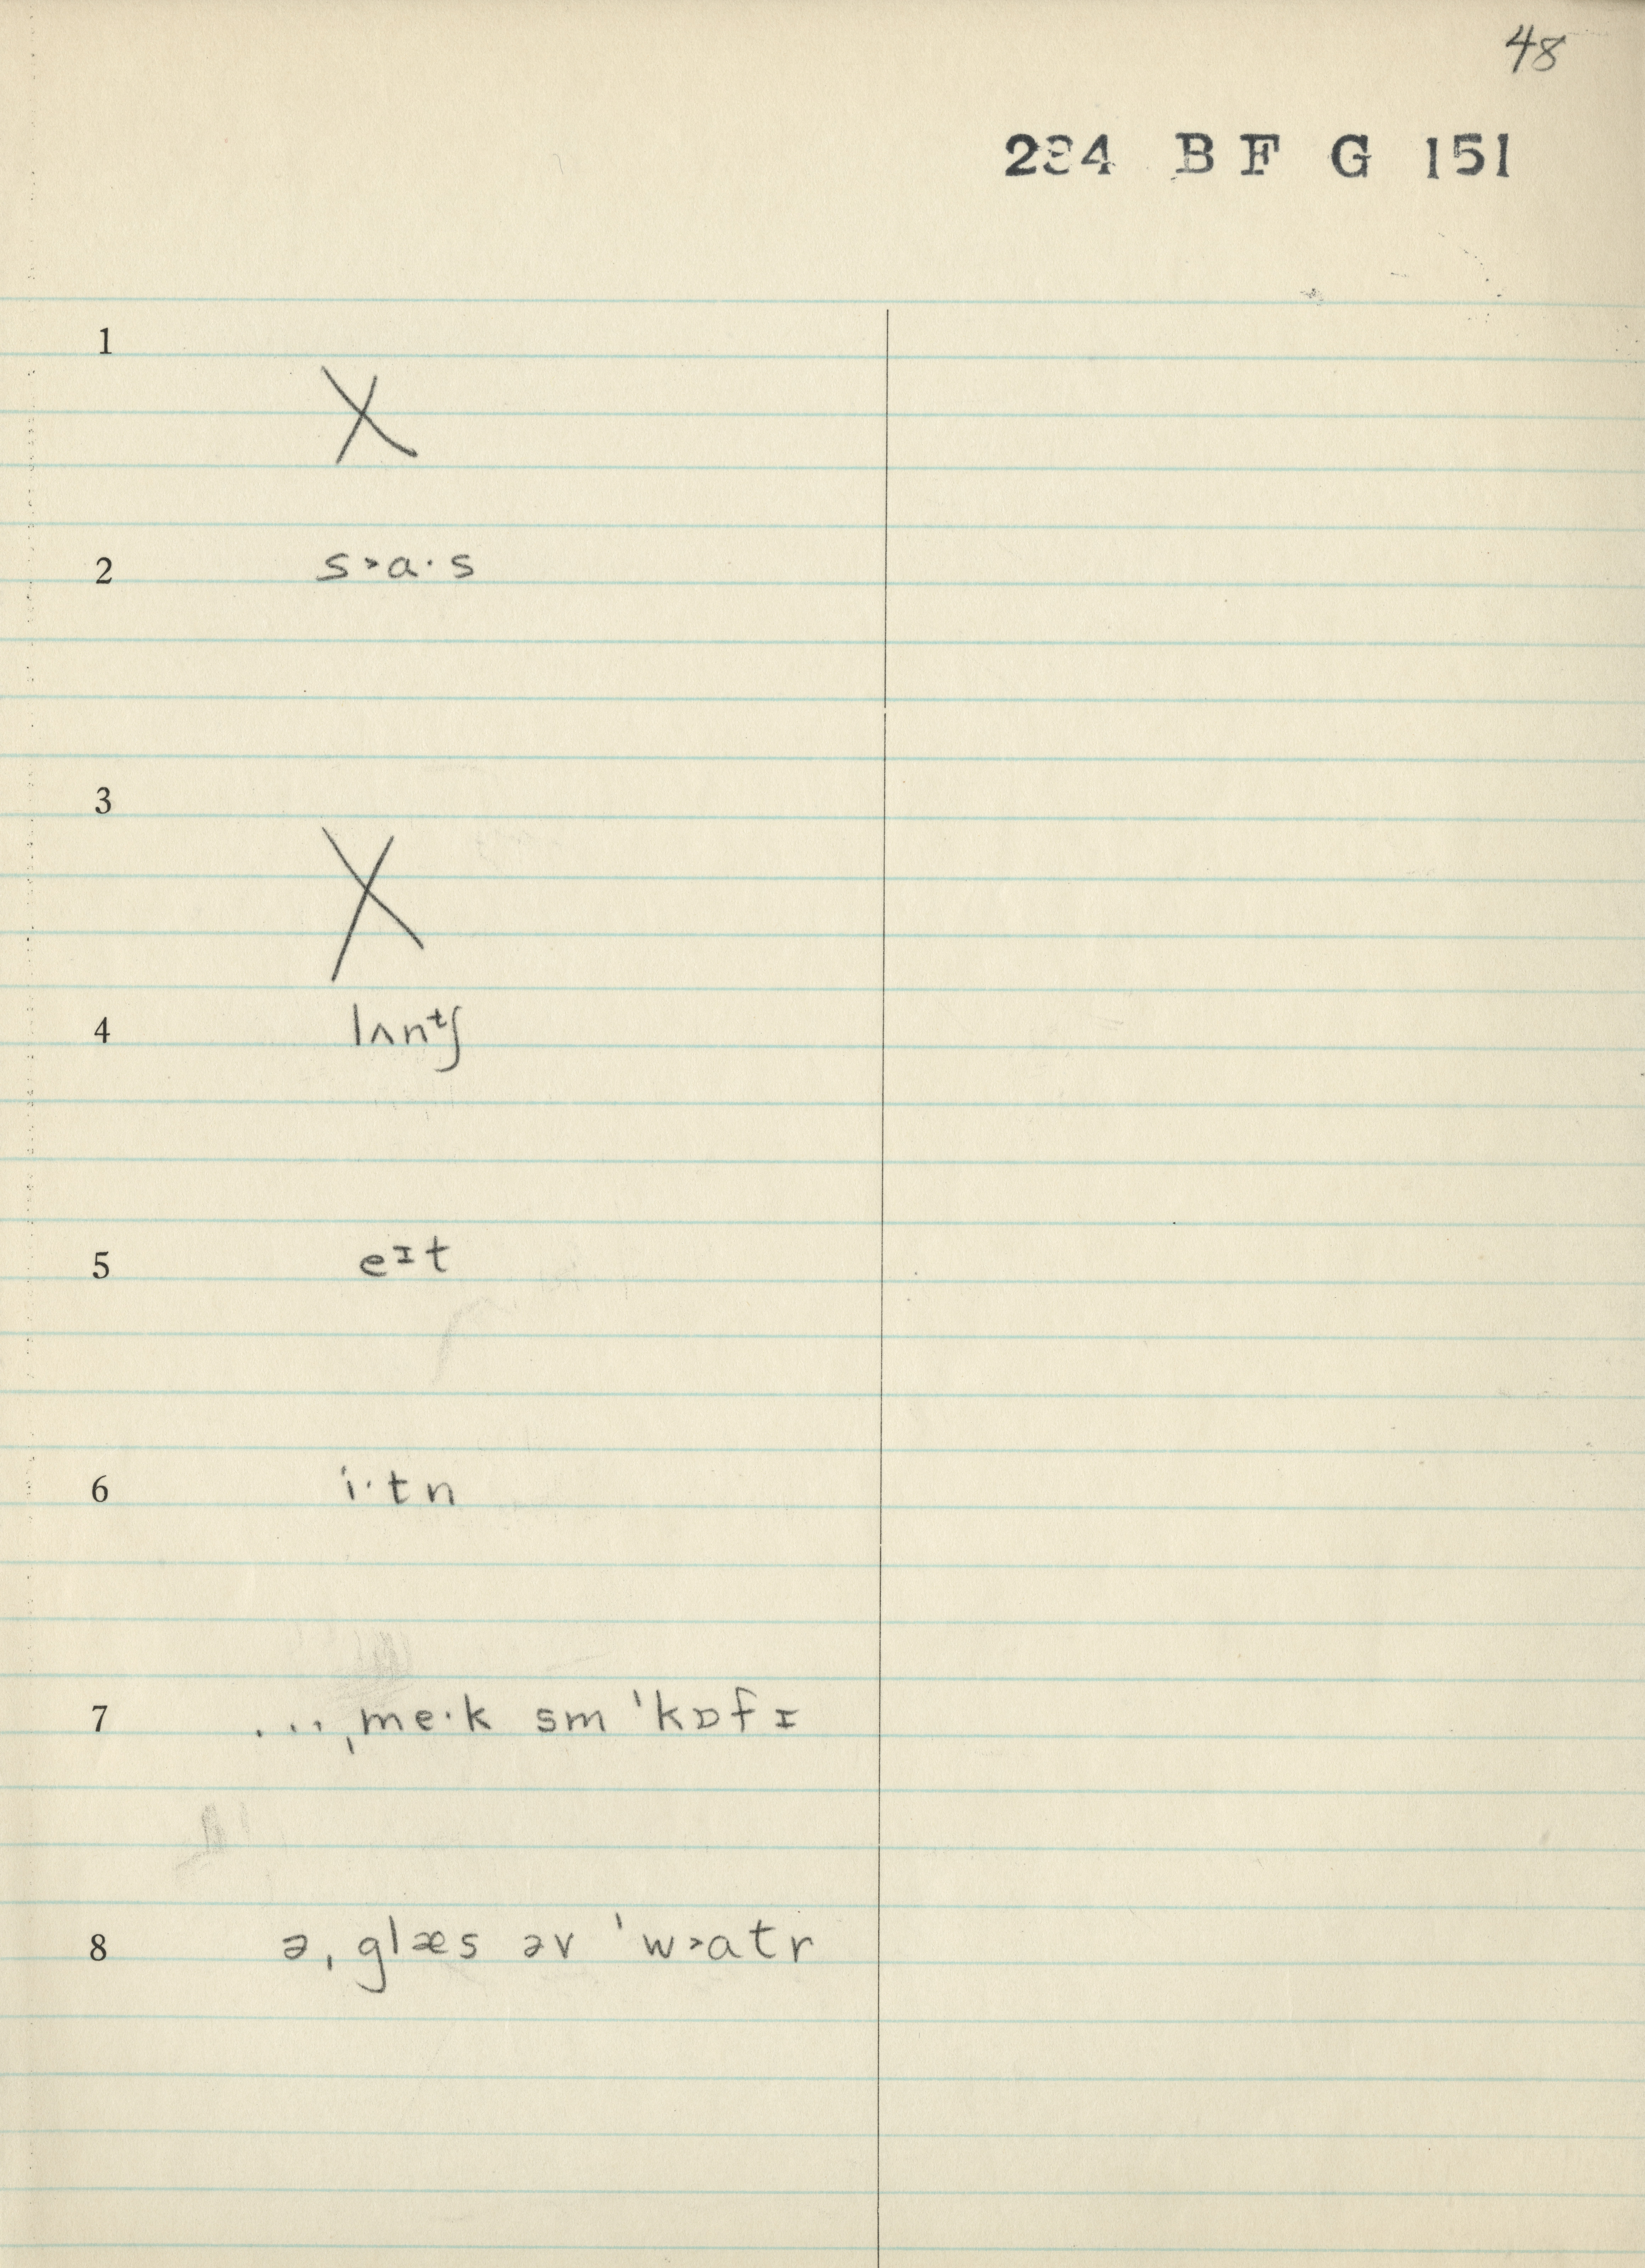 48
234 B F G 151
1
X
2 s˃ɑ·s
3
X
4 lʌnᵗʃ
5 eᶦt
6 i·tn
7 ...ˌme·k sm ˈkɒfɪ
8 əˌglæs əv ˈw˃ɑtr